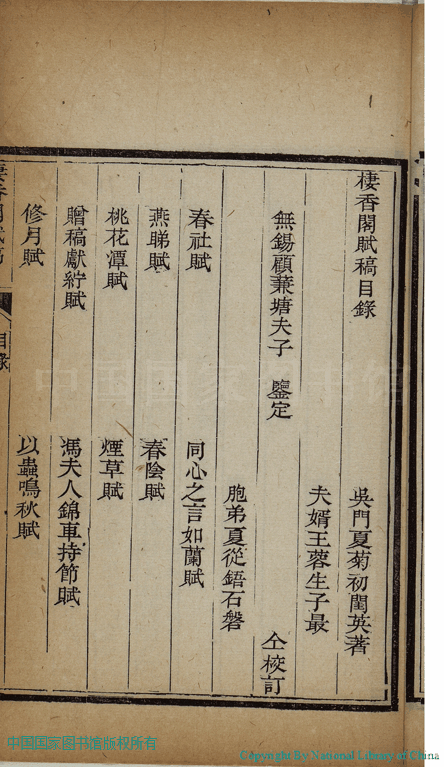 棲香閣賦稿目錄
吳門夏菊初閨英著
無錫顧蒹塘夫子 鑒定
夫婿王蓉生子最
胞弟夏從鋙石磐
仝校訂
春社賦
同心之言如蘭賦
燕睇賦
春陰賦
桃花潭賦
煙草賦
贈稿獻紵賦
馮夫人錦車持節賦
修月賦
以蟲鳴秋賦
棲香閣賦稿
目錄
中国国家图书馆
中国国家图书馆版权所有
Copyright By National Library of China